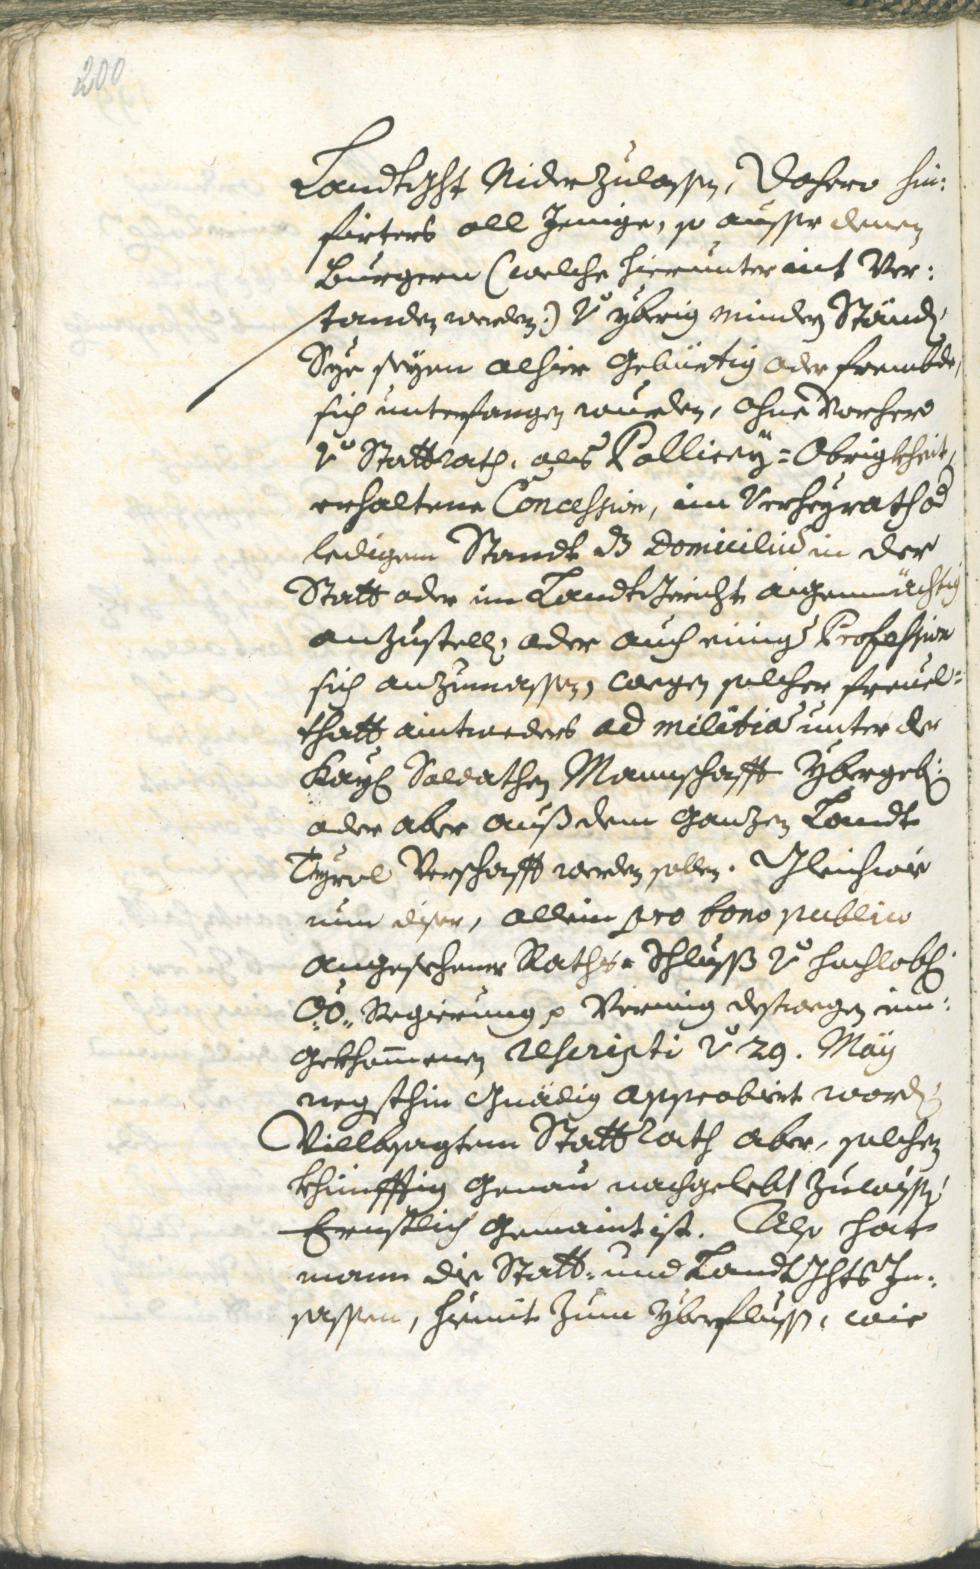 200
Landtghts Niderzulassen, Dahero hin:
firters all Jenige, so ausser denen
Burgern (welche hierunter nit Ver:
standen werden:) v̊ ybrig mindern Ständ,
Sye seyen alhier Gebürtig oder frembde,
sich unterfangen wurden, ohne Vorhero
v̊ Stattrath, als Pollicey=Obrigkheit,
erhaltene Concession, im Verheyrath od
ledigem Standt dz Domiciliũ in der
Statt oder im Landtgericht aigenmächtig
anzustelln, oder auch einige Profession
sich anzumassen, wegen solcher freuel=
thatt aintweders ad militiã unter der
Kayl Soldathen Mannschafft Ybergebn:
oder aber auß dem Ganzen Landt
Tyrol Verschafft werden sollen. Gleichwie
nun diser, allein pro bono publico
angesehener Raths=Schlusß v̊ hochlobl:
O:Ö: Regierung, Vermig destwegen ein:
gekhommenen rescripti v̊ 29. Maÿ
negsthin Gnädig approbiert wordn,
Villbesagtem Stattrath aber, solchen
khünfftig Genau nachgelebt zu wissen
Ernstlich Gemaint ist. Also hat
mann die Statt- und Landtghts In:
sassen, hiemit zum Yberflusß, wie